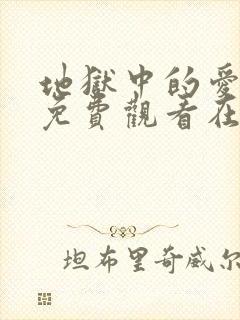 地獄中的愛
免費觀看在
坦布里奇威尔